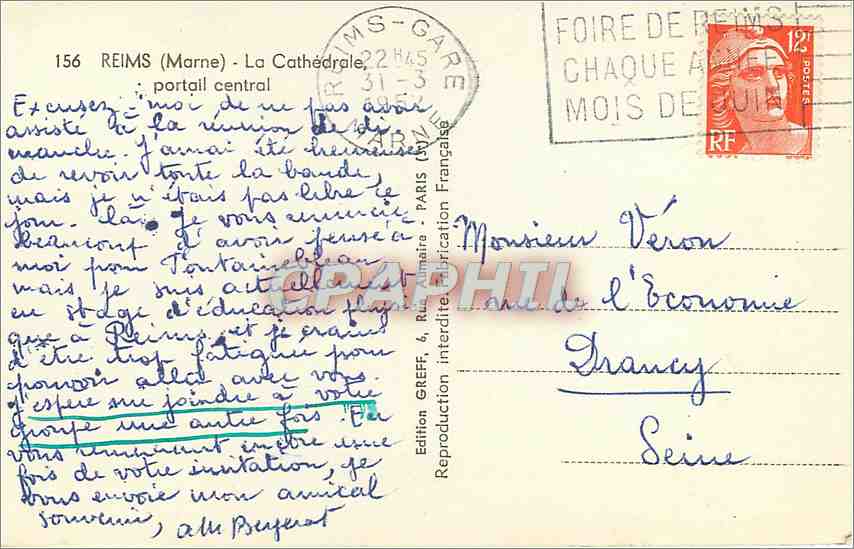 156 REIMS (Marne) - La Cathédrale,
portail central
Excusez-moi de ne pas avoir
assisté à la réunion de di
manche. J'aurai été heureuse
de revoir toute la bande,
mais je n'étais pas libre ce
jour-là. Je vous remercie
beaucoup d'avoir pensé à
moi pour Fontainebleau
mais je suis actuellement
en stage d'éducation physi
que à Reims et je crains
d'être trop fatiguée pour
pouvoir aller avec vous.
J'espère me joindre à votre
groupe une autre fois. En
vous remerciant encore une
fois de votre invitation, je
vous envoie mon amical
souvenir,
REIMS-GARE
22H45
31-3
MARNE
FOIRE DE REIMS
CHAQUE ANNEE
MOIS DE JUIN
12F
POSTES
RF
Edition GREFF, 6, Rue Aumaire - PARIS (3e)
Reproduction interdite. Fabrication Française
CPAPHIL
Monsieur Véron
rue de l'Economie
Drancy
Seine